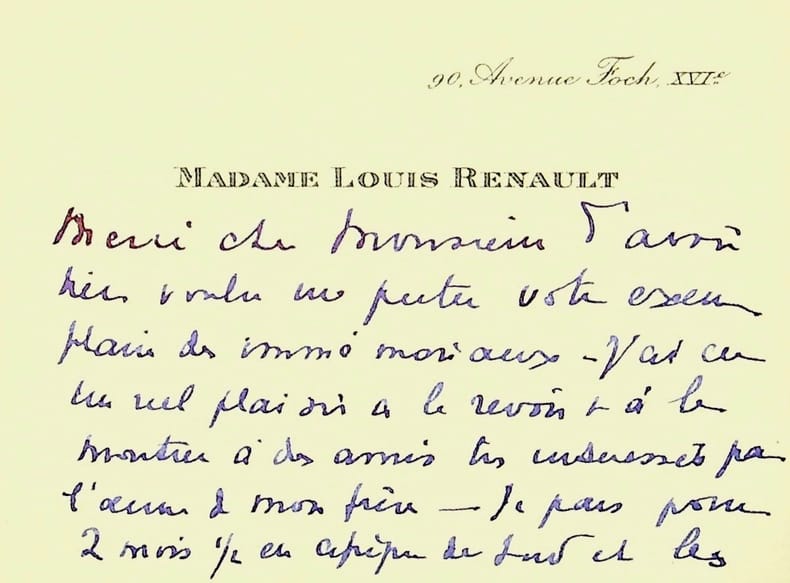 90, Avenue Foch, XVIe
MADAME LOUIS RENAULT
Merci cher Monsieur d'avoir
bien voulu me preter votre exem
plaire des immémoriaux – J'ai eu
un reel plaisir a le revoir + à le
montrer à des amis très interessés par
l'œuvre de mon frère — Je pars pour
2 mois 1/2 en afrique du sud et les